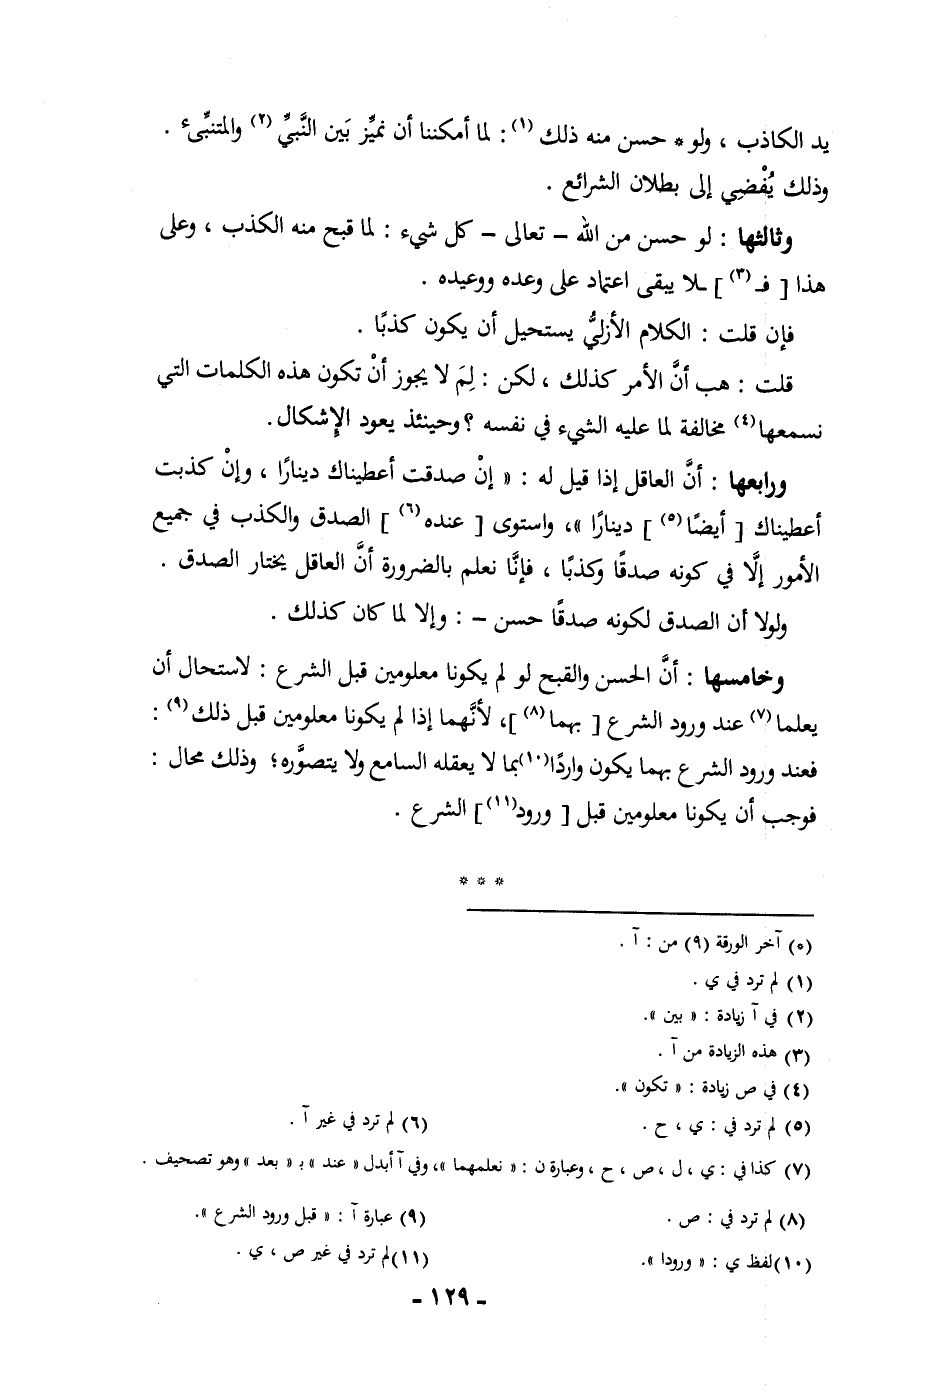 يد الكاذب ، ولو * حسن منه ذلك (١) : لما أمكننا أن نميِّز بَين النَّبيِّ (٢) والمتنبِّىء .
وذلك يُفْضِي إلى بطلان الشرائع .
وثالثها : لو حسن من الله – تعالى – كل شيء : لما قبح منه الكذب ، وعلى
هذا [ فـ (٣) ] ـلا يبقى اعتماد على وعده ووعيده .
فإن قلت : الكلام الأزليُّ يستحيل أن يكون كذبًا .
قلت : هب أنَّ الأمر كذلك ، لكن : لِمَ لا يجوز أنْ تكون هذه الكلمات التي
نسمعها (٤) مخالفة لما عليه الشيء في نفسه ؟ وحينئذ يعود الإشكال.
ورابعها : أنَّ العاقل إذا قيل له : « إنْ صدقت أعطيناك دينارًا ، وإنْ كذبت
أعطيناك [ أيضًا (٥) ] دينارًا »، واستوى [ عنده (٦) ] الصدق والكذب في جميع
الأمور إلَّا في كونه صدقًا وكذبًا ، فإنَّا نعلم بالضرورة أنَّ العاقل يختار الصدق .
ولولا أن الصدق لكونه صدقًا حسن – : وإلا لما كان كذلك .
وخامسها : أنَّ الحسن والقبح لو لم يكونا معلومين قبل الشرع : لاستحال أن
يعلما (٧) عند ورود الشرع [ بهما (٨) ]، لأنَّهما إذا لم يكونا معلومين قبل ذلك (٩) :
فعند ورود الشرع بهما يكون واردًا (١٠) بما لا يعقله السامع ولا يتصوَّره؛ وذلك محال :
فوجب أن يكونا معلومين قبل [ ورود (١١) ] الشرع .
* * *
(*) آخر الورقة (٩) من : آ .
(١) لم ترد في ي .
(٢) في آ زيادة : « بين ».
(٣) هذه الزيادة من آ .
(٤) في ص زيادة : « تكون ».
(٥) لم ترد في : ي ، ح . (٦) لم ترد في غير آ .
(٧) كذا في : ي ، ل ، ص ، ح ، وعبارة ن : « نعلمهما »، وفي آ أبدل « عند » بـ « بعد » وهو تصحيف .
(٨) لم ترد في : ص . (٩) عبارة آ : « قبل ورود الشرع ».
(١٠) لفظ ي : « ورودا ». (١١) لم ترد في غير ص ، ي .
- ١٢٩ -